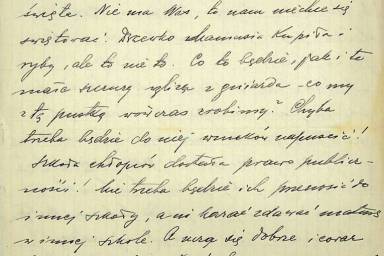 święta. Nie ma Was, to nam niechce się
świętować. Drzewko Mamusia Kupiła i
ryby, ale to nie to. Co to będzie, jak i te
małe wyjdzie z gniazda - co my
z tą pustką wówczas zrobimy? Chyba
trzeba będzie do niej wnuków napuścić!
Szkoła chłopców dostała prawo publicz-
ności! Nie trzeba będzie ich przenosić do
innej szkoły, ani kazać zdawać maturę
w innej szkole. A uczą się dobrze i coraz